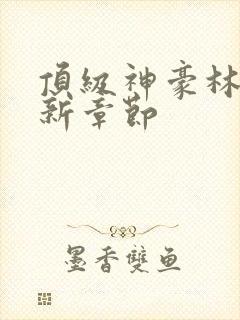 頂級神豪林
新章節
墨香雙鱼